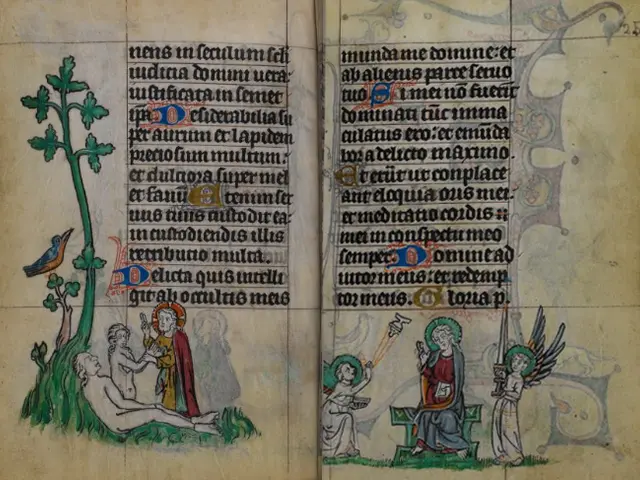 nens in seculum scli
iudicia domini uera:
iustificata in semet
ipa Desiderabilia su
per aurum et lapidem
preciosium multum:
et dulciora super mel
et fauū Etenim ser
uus tuus custodit ea:
in custodiendis illis
retributio multa.
Delicta quis intelli
git ab occultis meis
munda me domine: et
ab alienis parce seruo
tuo Si mei nō fuerīt
dominati tūc imma
culatus ero: et emūda
bor a delicto maximo.
Et erūt ut conplace
ant eloquia oris mei:
et meditatio cordis
mei in conspectu meo
semper Domine ad
iutor meus: et redemp
tor meus. Gloria p.